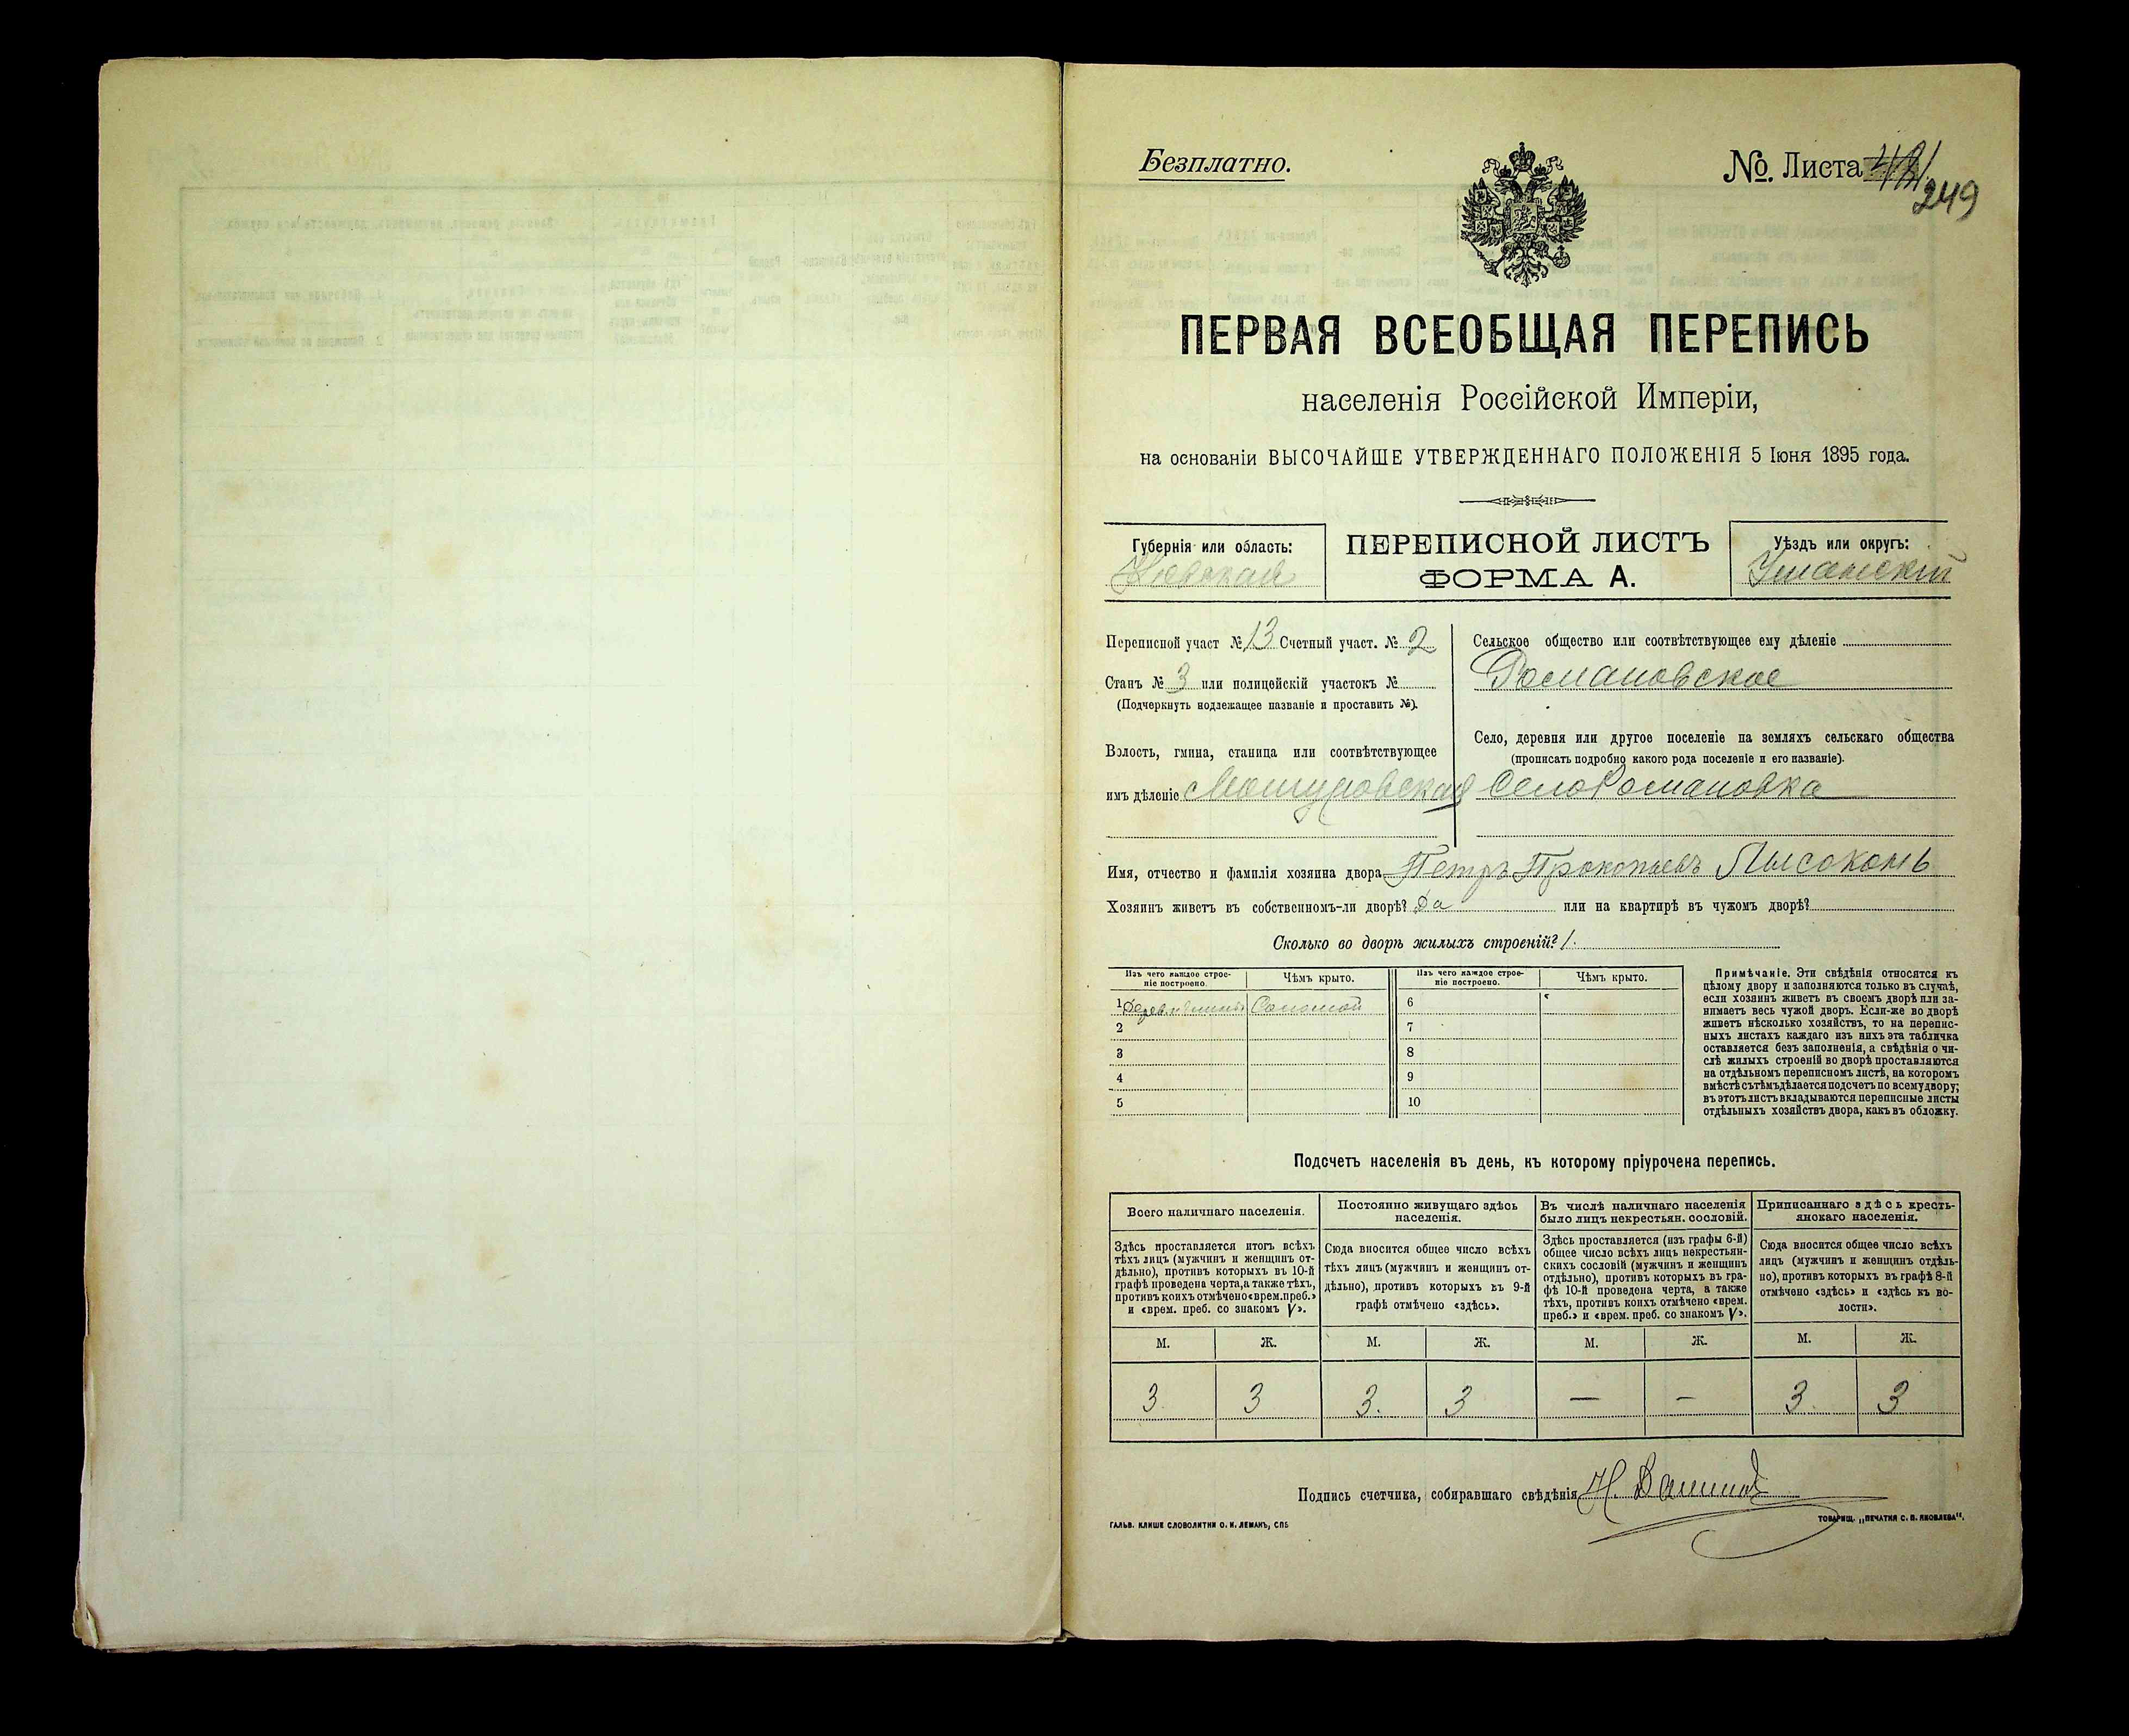 Безплатно.
№. Листа
249
ПЕРВАЯ ВСЕОБЩАЯ ПЕРЕПИСЬ
населенія Россійской Имперіи,
на основаніи ВЫСОЧАЙШЕ УТВЕРЖДЕННАГО ПОЛОЖЕНІЯ 5 Іюня 1895 года.
Губернія или область:
Кіевская
ПЕРЕПИСНОЙ ЛИСТЪ
ФОРМА А.
Уѣздъ или округъ:
Уманскій
Переписной участ № 13 Счетный участ. № 2
Станъ № 3 или полицейскій участокъ №
(Подчеркнуть подлежащее названіе и проставить №).
Волость, гмина, станица или соотвѣтствующее
имъ дѣленіе Машуровская
Сельское общество или соотвѣтствующее ему дѣленіе
Романовское
Село, деревня или другое поселеніе на земляхъ сельскаго общества
(прописать подробно какого рода поселеніе и его названіе).
Село Романовка
Имя, отчество и фамилія хозяина двора Петръ Прокопьевъ Лысоконь
Хозяинъ живетъ въ собственномъ-ли дворѣ? Да или на квартирѣ въ чужомъ дворѣ?
Сколько во дворѣ жилыхъ строеній? 1.
Изъ чего каждое строе-
ніе построено.
Чѣмъ крыто.
Изъ чего каждое строе-
ніе построено.
Чѣмъ крыто.
1 Соломой 6
2 7
3 8
4 9
5 10
Примѣчаніе. Эти свѣдѣнія относятся къ
цѣлому двору и заполняются только въ случаѣ,
если хозяинъ живетъ въ своемъ дворѣ или за-
нимаетъ весь чужой дворъ. Если-же во дворѣ
живетъ нѣсколько хозяйствъ, то на перепис-
ныхъ листахъ каждаго изъ нихъ эта табличка
оставляется безъ заполненія, а свѣдѣнія о чи-
слѣ жилыхъ строеній во дворѣ проставляются
на отдѣльномъ переписномъ листѣ, на которомъ
вмѣстѣ съ тѣмъ дѣлается подсчетъ по всему двору;
въ этотъ листъ вкладываются переписные листы
отдѣльныхъ хозяйствъ двора, какъ въ обложку.
Подсчетъ населенія въ день, къ которому пріурочена перепись.
Всего наличнаго населенія.
Здѣсь проставляется итогъ всѣхъ
тѣхъ лицъ (мужчинъ и женщинъ от-
дѣльно), противъ которыхъ въ 10-й
графѣ проведена черта, а также тѣхъ,
противъ коихъ отмѣчено «врем. преб.»
и «врем. преб. со знакомъ V».
Постоянно живущаго здѣсь
населенія.
Сюда вносится общее число всѣхъ
тѣхъ лицъ (мужчинъ и женщинъ от-
дѣльно), противъ которыхъ въ 9-й
графѣ отмѣчено «здѣсь».
Въ числѣ наличнаго населенія
было лицъ некрестьян. сословій.
Здѣсь проставляется (изъ графы 6-й)
общее число всѣхъ лицъ некрестьян-
скихъ сословій (мужчинъ и женщинъ
отдѣльно), противъ которыхъ въ гра-
фѣ 10-й проведена черта, а также
тѣхъ, противъ коихъ отмѣчено «врем.
преб.» и «врем. преб. со знакомъ V».
Приписаннаго здѣсь кресть-
янскаго населенія.
Сюда вносится общее число всѣхъ
лицъ (мужчинъ и женщинъ отдѣль-
но), противъ которыхъ въ графѣ 8-й
отмѣчено «здѣсь» и «здѣсь въ во-
лости».
М. Ж. М. Ж. М. Ж. М. Ж.
3. 3 3. 3 — – 3. 3
Подпись счетчика, собиравшаго свѣдѣнія
ГАЛЬВ. КЛИШЕ СЛОВОЛИТНИ О. И. ЛЕМАНЪ, СПБ
ТОВАРИЩ. „ПЕЧАТНЯ С. П. ЯКОВЛЕВА".